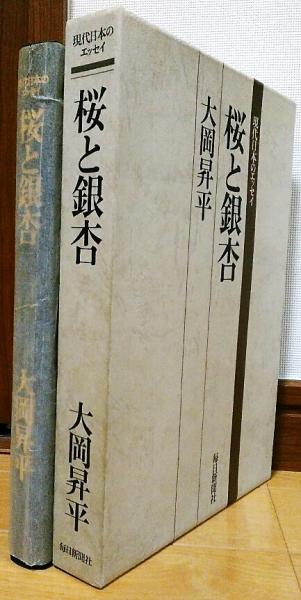 現代日本の
エッセイ
桜と銀杏
大岡昇平
現代日本の
エッセイ
桜と銀杏
大岡昇平
毎日新聞社
現代日本のエッセイ
桜と銀杏
大岡昇平
毎日新聞社